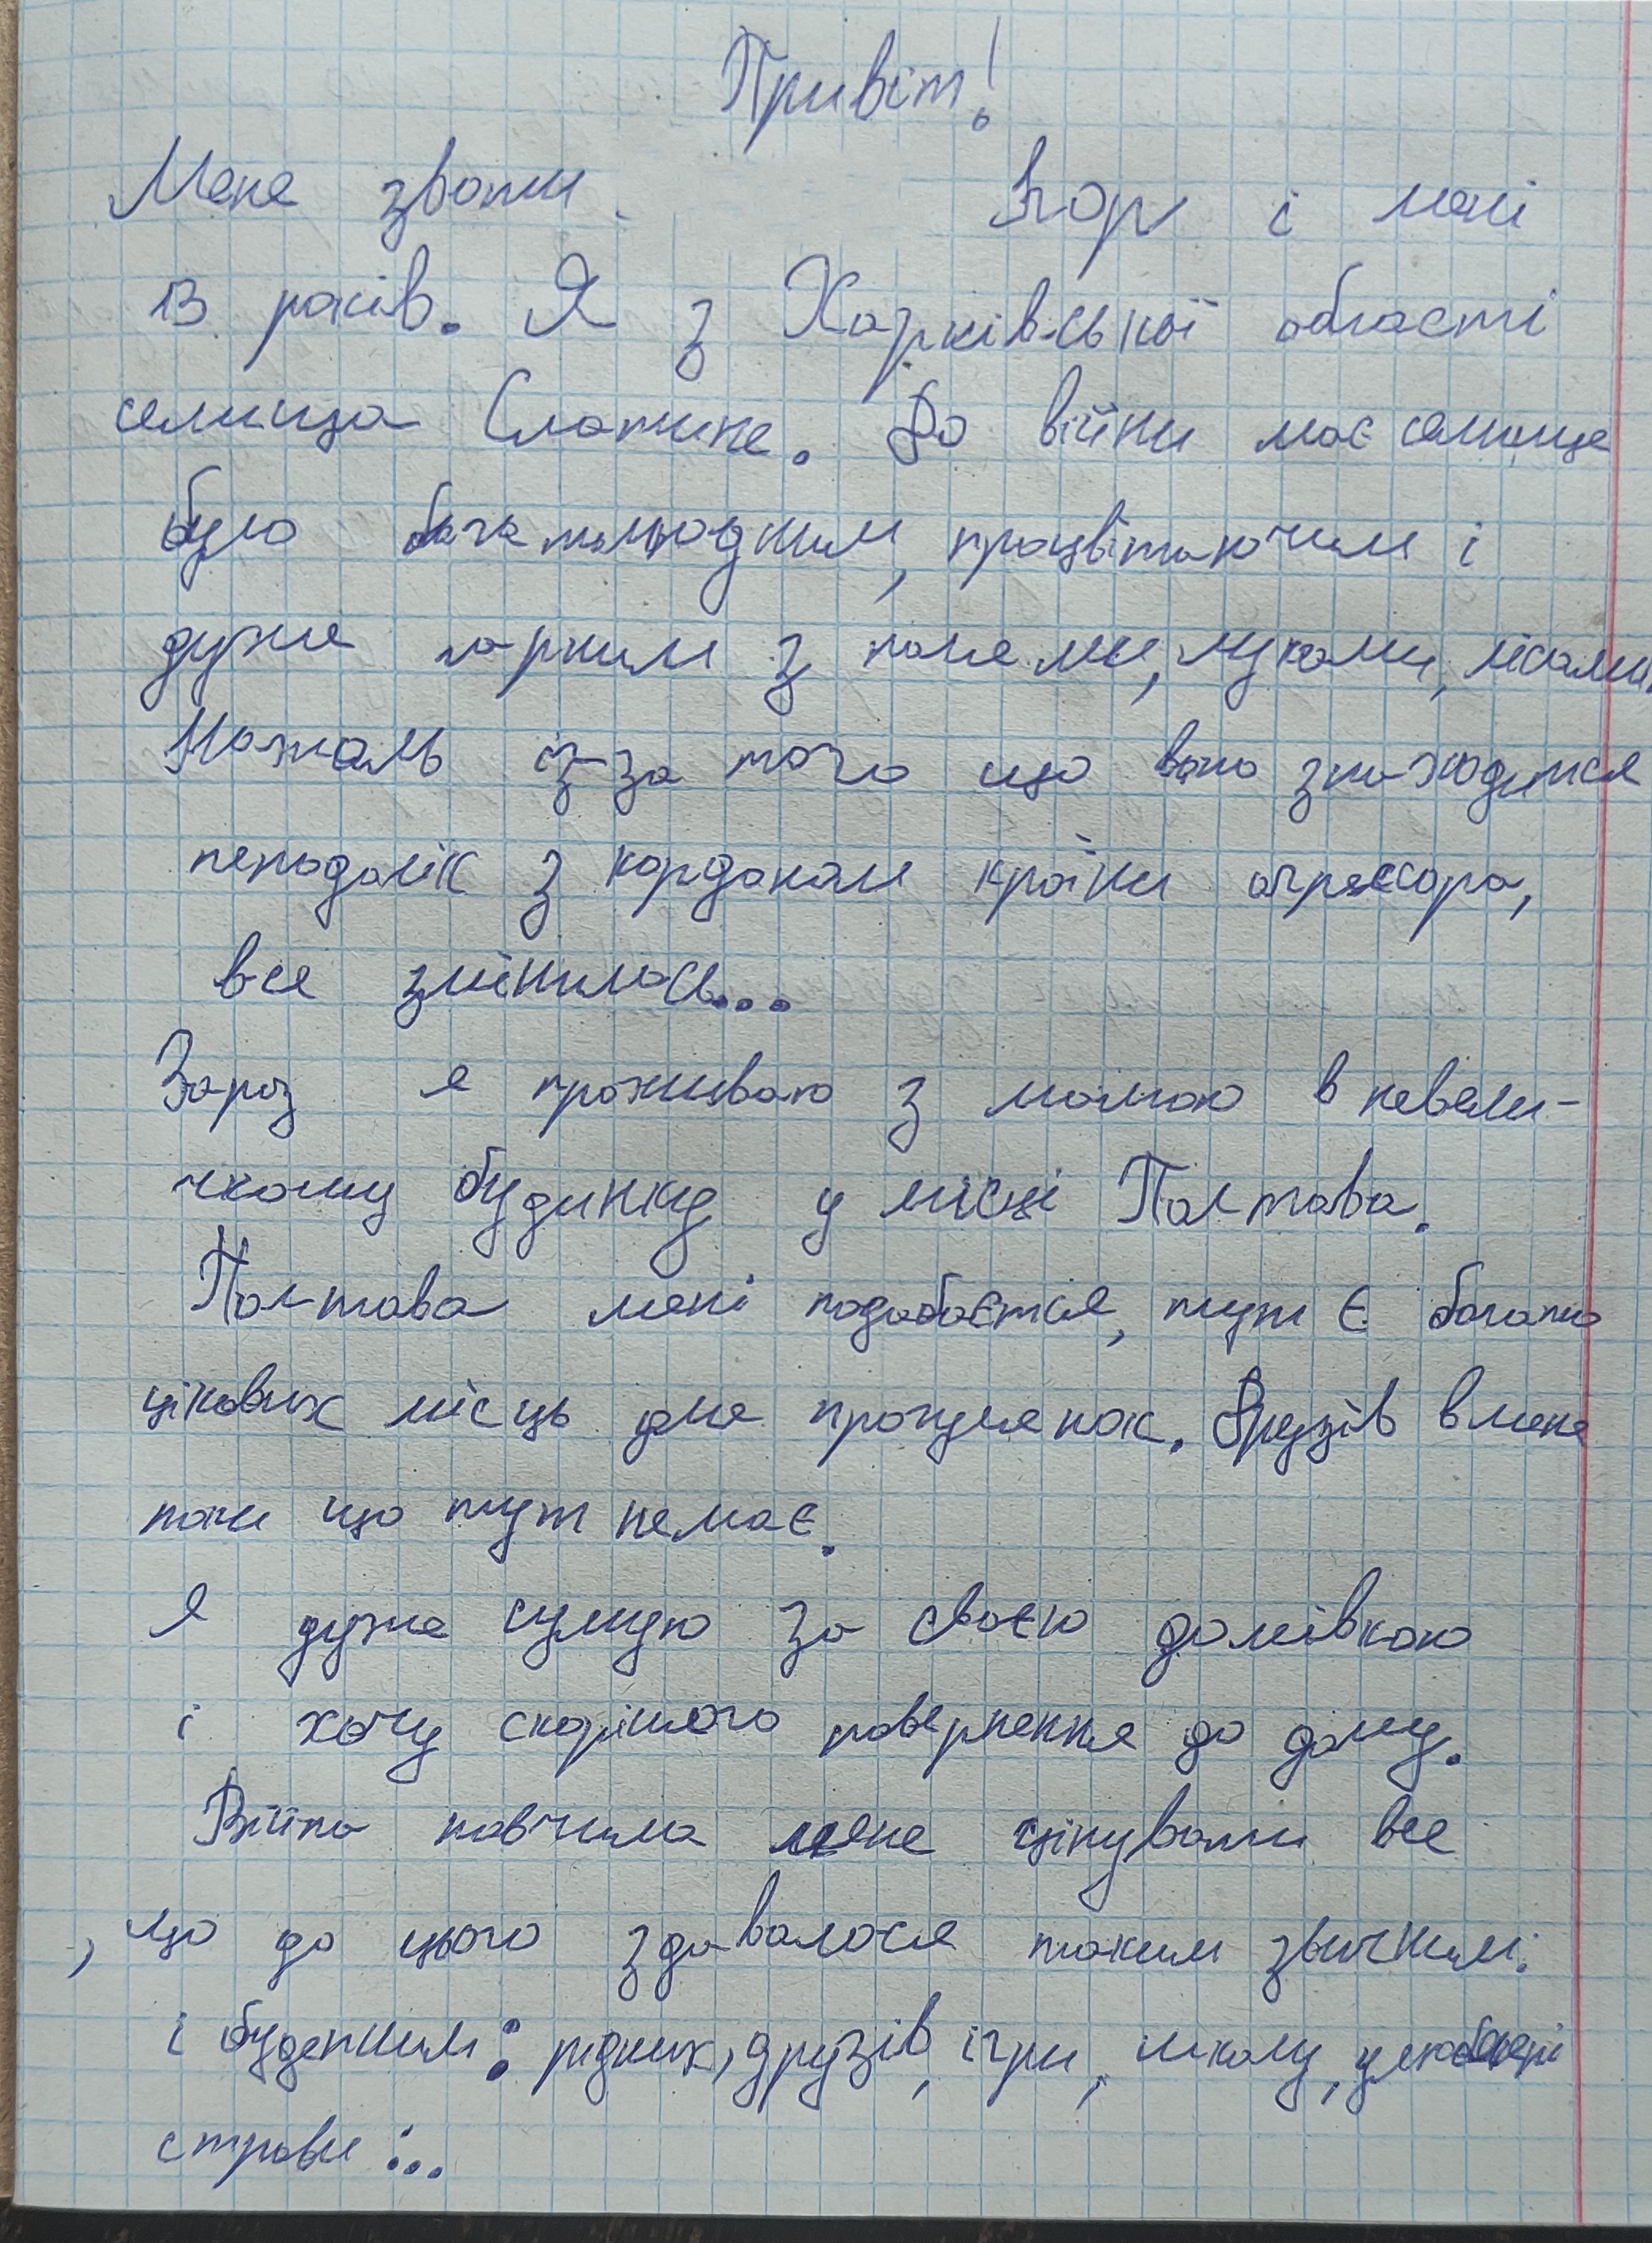 Привіт!
Мене звати Ігор і мені
13 років. Я з Харківської області
селища Слатине. До війни моє селище
було багатолюдним, процвітаючим і
дуже гарним з полями, луками, лісами.
Нажаль із-за того що воно знаходится
неподалік з кордоном країни агрессора,
все змінилось...
Зараз я проживаю з мамою в невели-
чкому будинку у місці Полтава.
Полтава мені подобаєтся, тут є багато
цікавих місць для прогулянок. Друзів в мене
поки що тут немає.
Я дуже сумую за своєю домівкою
і хочу скорішого повернення до дому.
Війна навчила мене цінувати все
, що до цього здавалося таким звичним.
і буденним: рідних, друзів, ігри, школу, улюблені
страви...